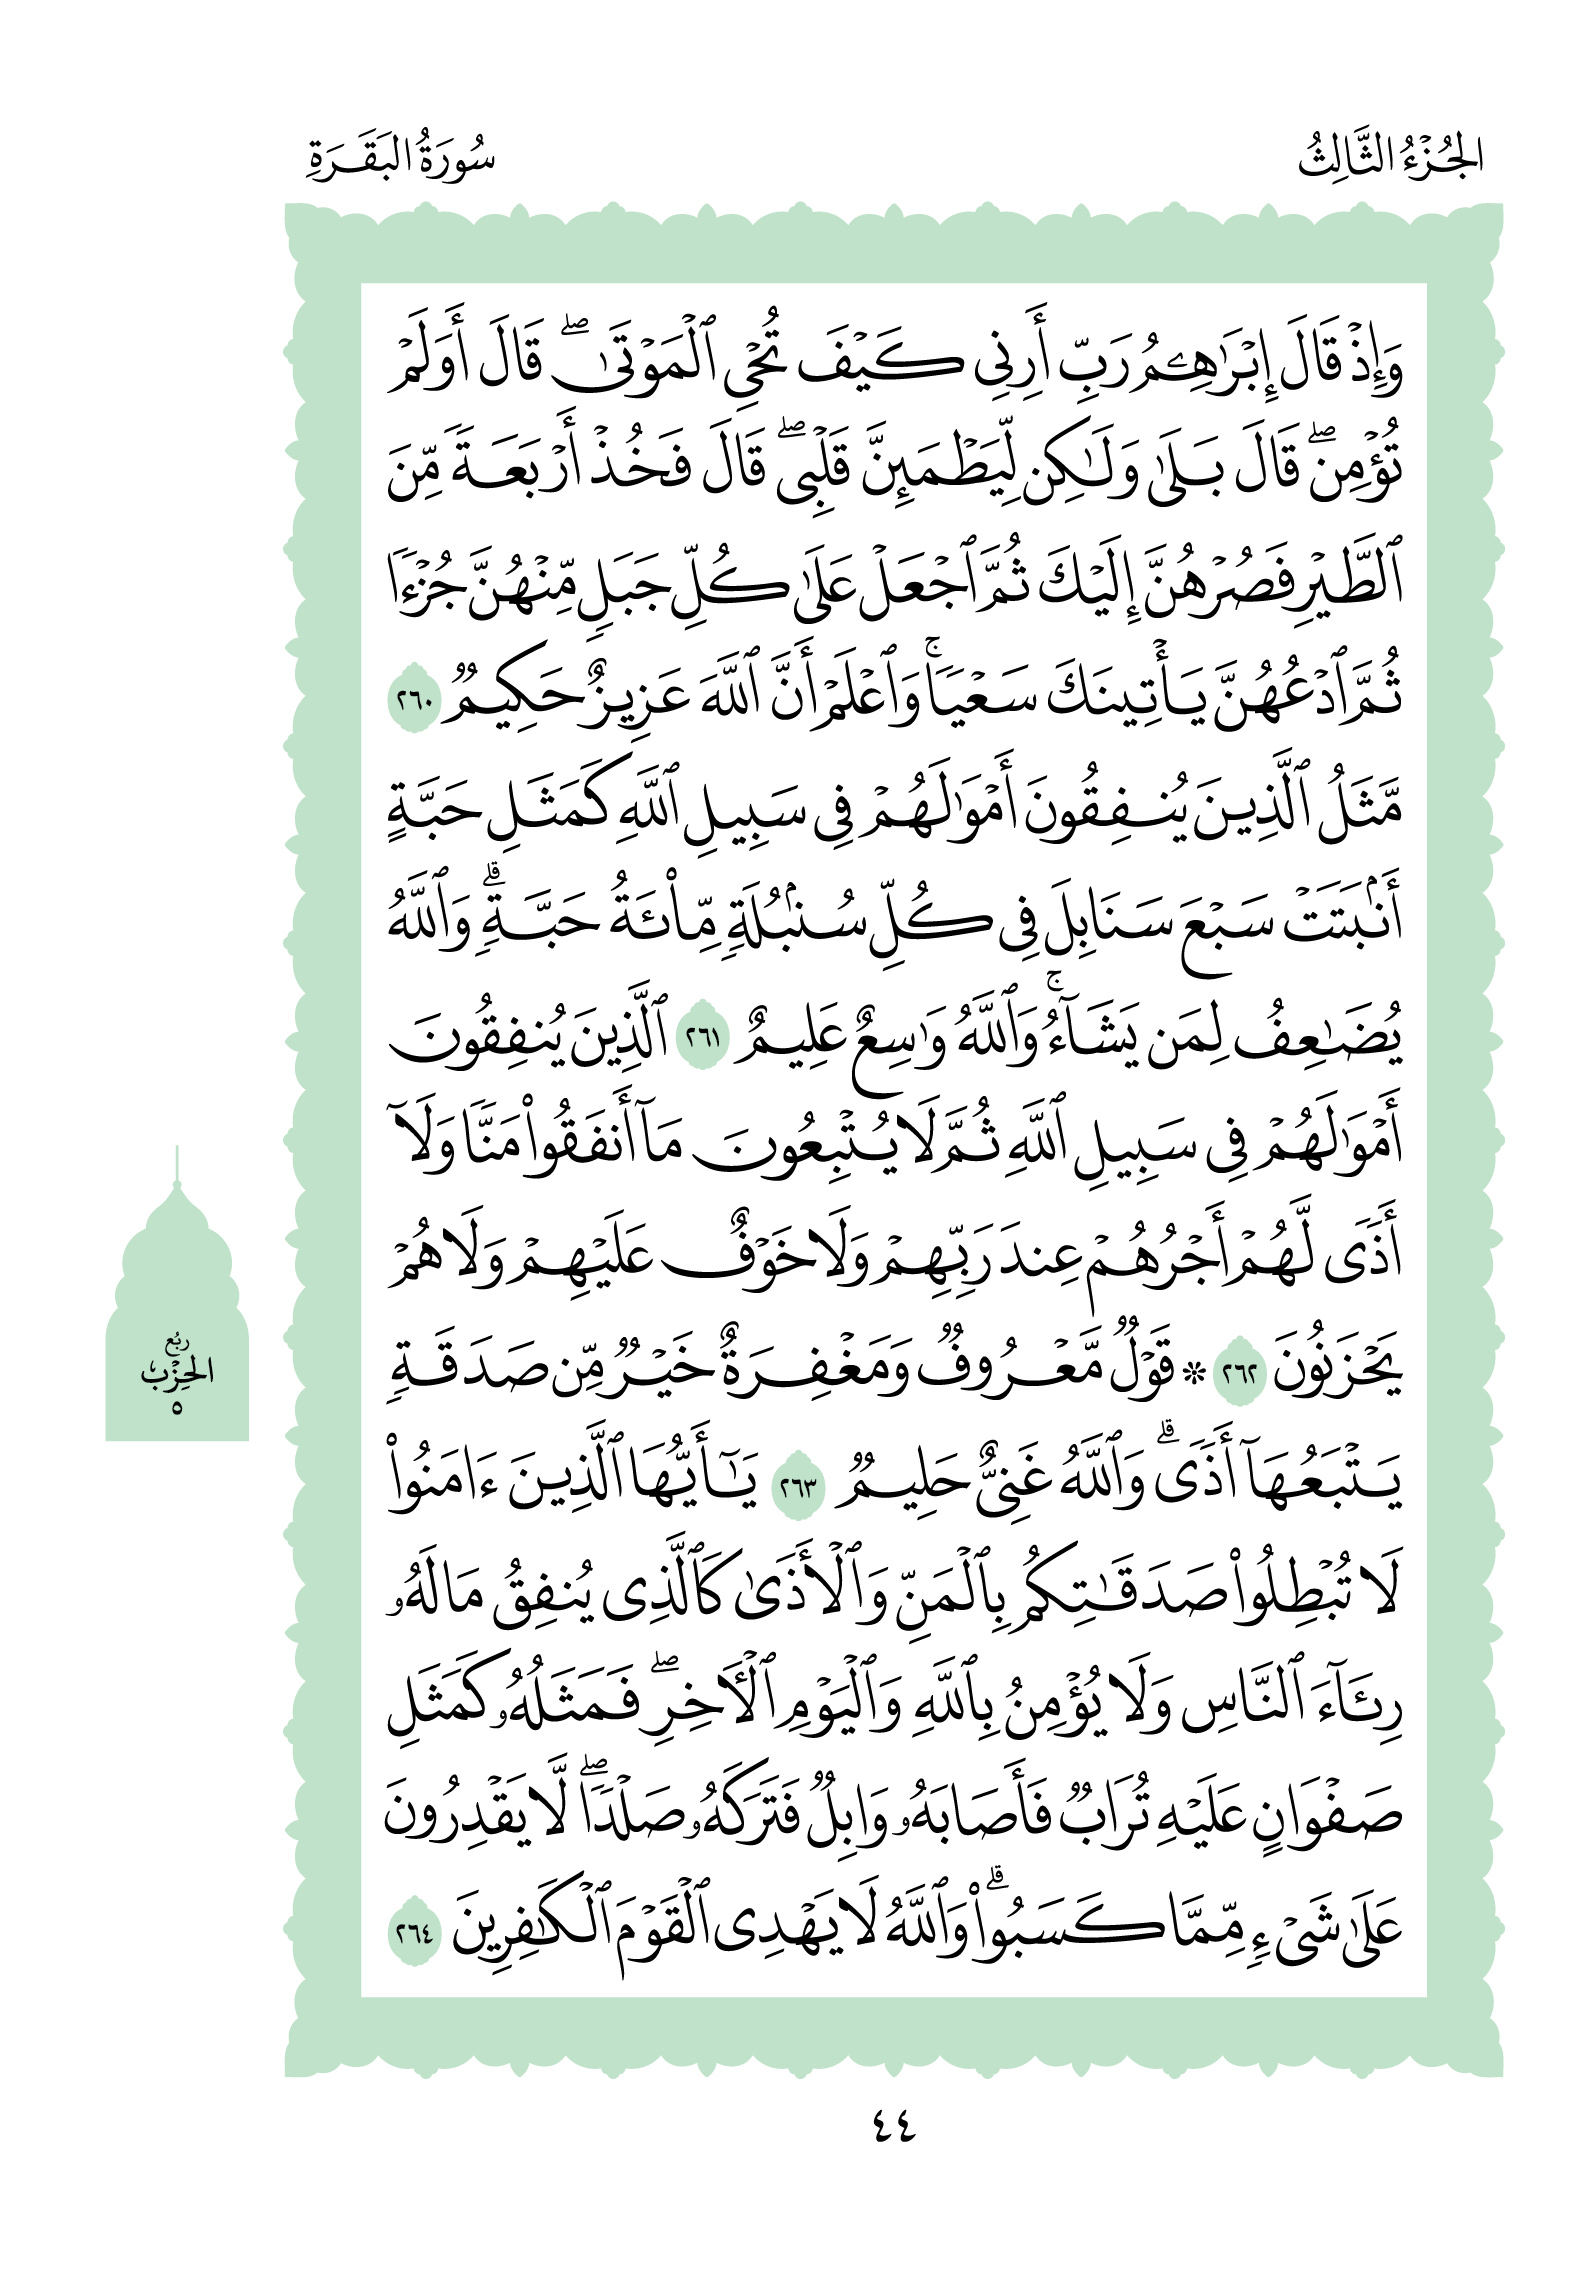 الجُزْءُ الثَّالِثُ
سُورَةُ البَقَرَةِ
وَإِذۡ قَالَ إِبۡرَٰهِـۧمُ رَبِّ أَرِنِي كَيۡفَ تُحۡيِ ٱلۡمَوۡتَىٰۖ قَالَ أَوَلَمۡ
تُؤۡمِنۖ قَالَ بَلَىٰ وَلَٰكِن لِّيَطۡمَئِنَّ قَلۡبِيۖ قَالَ فَخُذۡ أَرۡبَعَةٗ مِّنَ
ٱلطَّيۡرِ فَصُرۡهُنَّ إِلَيۡكَ ثُمَّ ٱجۡعَلۡ عَلَىٰ كُلِّ جَبَلٖ مِّنۡهُنَّ جُزۡءٗا
ثُمَّ ٱدۡعُهُنَّ يَأۡتِينَكَ سَعۡيٗاۚ وَٱعۡلَمۡ أَنَّ ٱللَّهَ عَزِيزٌ حَكِيمٞ ٢٦٠
مَّثَلُ ٱلَّذِينَ يُنفِقُونَ أَمۡوَٰلَهُمۡ فِي سَبِيلِ ٱللَّهِ كَمَثَلِ حَبَّةٍ
أَنۢبَتَتۡ سَبۡعَ سَنَابِلَ فِي كُلِّ سُنۢبُلَةٖ مِّاْئَةُ حَبَّةٖۗ وَٱللَّهُ
يُضَٰعِفُ لِمَن يَشَآءُۚ وَٱللَّهُ وَٰسِعٌ عَلِيمٌ ٢٦١ ٱلَّذِينَ يُنفِقُونَ
أَمۡوَٰلَهُمۡ فِي سَبِيلِ ٱللَّهِ ثُمَّ لَا يُتۡبِعُونَ مَآ أَنفَقُواْ مَنّٗا وَلَآ
أَذٗى لَّهُمۡ أَجۡرُهُمۡ عِندَ رَبِّهِمۡ وَلَا خَوۡفٌ عَلَيۡهِمۡ وَلَا هُمۡ
يَحۡزَنُونَ ٢٦٢ ۞ قَوۡلٞ مَّعۡرُوفٞ وَمَغۡفِرَةٌ خَيۡرٞ مِّن صَدَقَةٖ
يَتۡبَعُهَآ أَذٗىۗ وَٱللَّهُ غَنِيٌّ حَلِيمٞ ٢٦٣ يَٰٓأَيُّهَا ٱلَّذِينَ ءَامَنُواْ
لَا تُبۡطِلُواْ صَدَقَٰتِكُم بِٱلۡمَنِّ وَٱلۡأَذَىٰ كَٱلَّذِي يُنفِقُ مَالَهُۥ
رِئَآءَ ٱلنَّاسِ وَلَا يُؤۡمِنُ بِٱللَّهِ وَٱلۡيَوۡمِ ٱلۡأٓخِرِۖ فَمَثَلُهُۥ كَمَثَلِ
صَفۡوَانٍ عَلَيۡهِ تُرَابٞ فَأَصَابَهُۥ وَابِلٞ فَتَرَكَهُۥ صَلۡدٗاۖ لَّا يَقۡدِرُونَ
عَلَىٰ شَيۡءٖ مِّمَّا كَسَبُواْۗ وَٱللَّهُ لَا يَهۡدِي ٱلۡقَوۡمَ ٱلۡكَٰفِرِينَ ٢٦٤
رُبُع
الحِزۡبِ
٥
٤٤